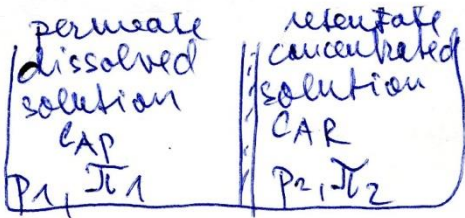 permeate
dissolved
solution
C_Ap
p_1, π_1
retentate
concentrated
solution
C_AR
p_2, π_2